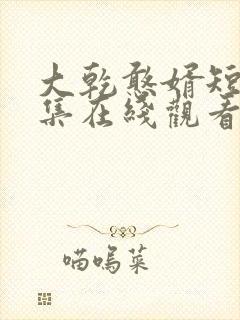 大乾憨婿短
集在綫觀看
喵嗚菜